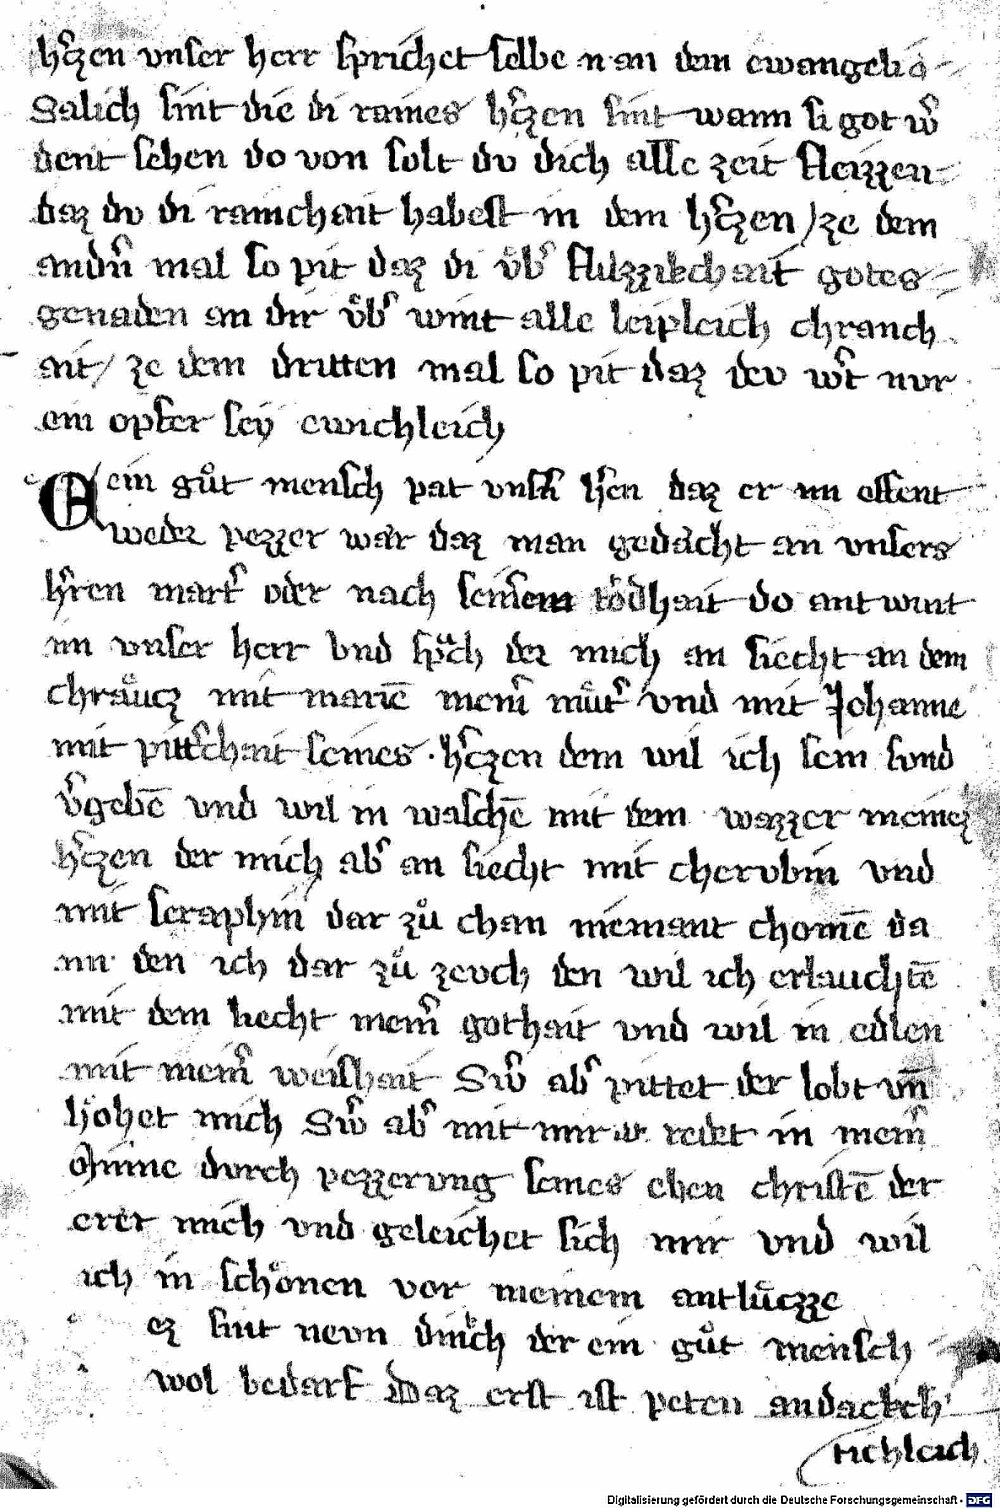 hˢczen vnser herr sprichet selbe an dem ewangelio
Salich sint die di raines hˢczen sint wann si got wˢ
dent sehen do von solt du dich alle zeit fleizzen
daz du di rainchait habest in dem hˢczen / ze dem
andˢn mal so pit daz di vͤbˢ flüzzichait gotes
genaden an dir vͤbˢ wint alle leipleich chranch
ait / ze dem dritten mal so pit daz dev wˢt nvr
ein opfer sey ewichleich
Ein gůt mensch pat vnsˢn hˢren daz er im offent
weder pezzer wär daz man gedächt an vnsers
hˢren martˢ oder nach seinˢ tödhait do antwurt
im vnser herr vnd sprͣch der mich an siecht an dem
chraͤucz mit marie͞ meinˢ muͤtˢ vnd mit Johanne
mit pittˢchait seines hˢczen dem wil ich sein sund
vˢgebe͞ vnd wil in wasche͞ mit dem wazzer meinez
hˢczen der mich abˢ an siecht mit cherubin vnd
mit seraphin dar zů chan niemant chome͞ da
nn den ich dar zů zeuch den wil ich erlauchte͞
mit dem liecht meinˢ gothait vnd wil in edlen
mit meinˢ weishait Swˢ abˢ pittet der lobt vn͞
höhet mich Swˢ abˢ mit mir redet in meinˢ
Minne durch pezzerung seines eben christe͞ der
eret mich vnd geleichet sich mir vnd wil
ich in schönen vor meinem antluͤczze
ez sint nevn dinch der ein gůt mensch
wol bedarf Daz erst ist peten andackch
tichleich
Digitalisierung gefördert durch die Deutsche Forschungsgemeinschaft - DFG